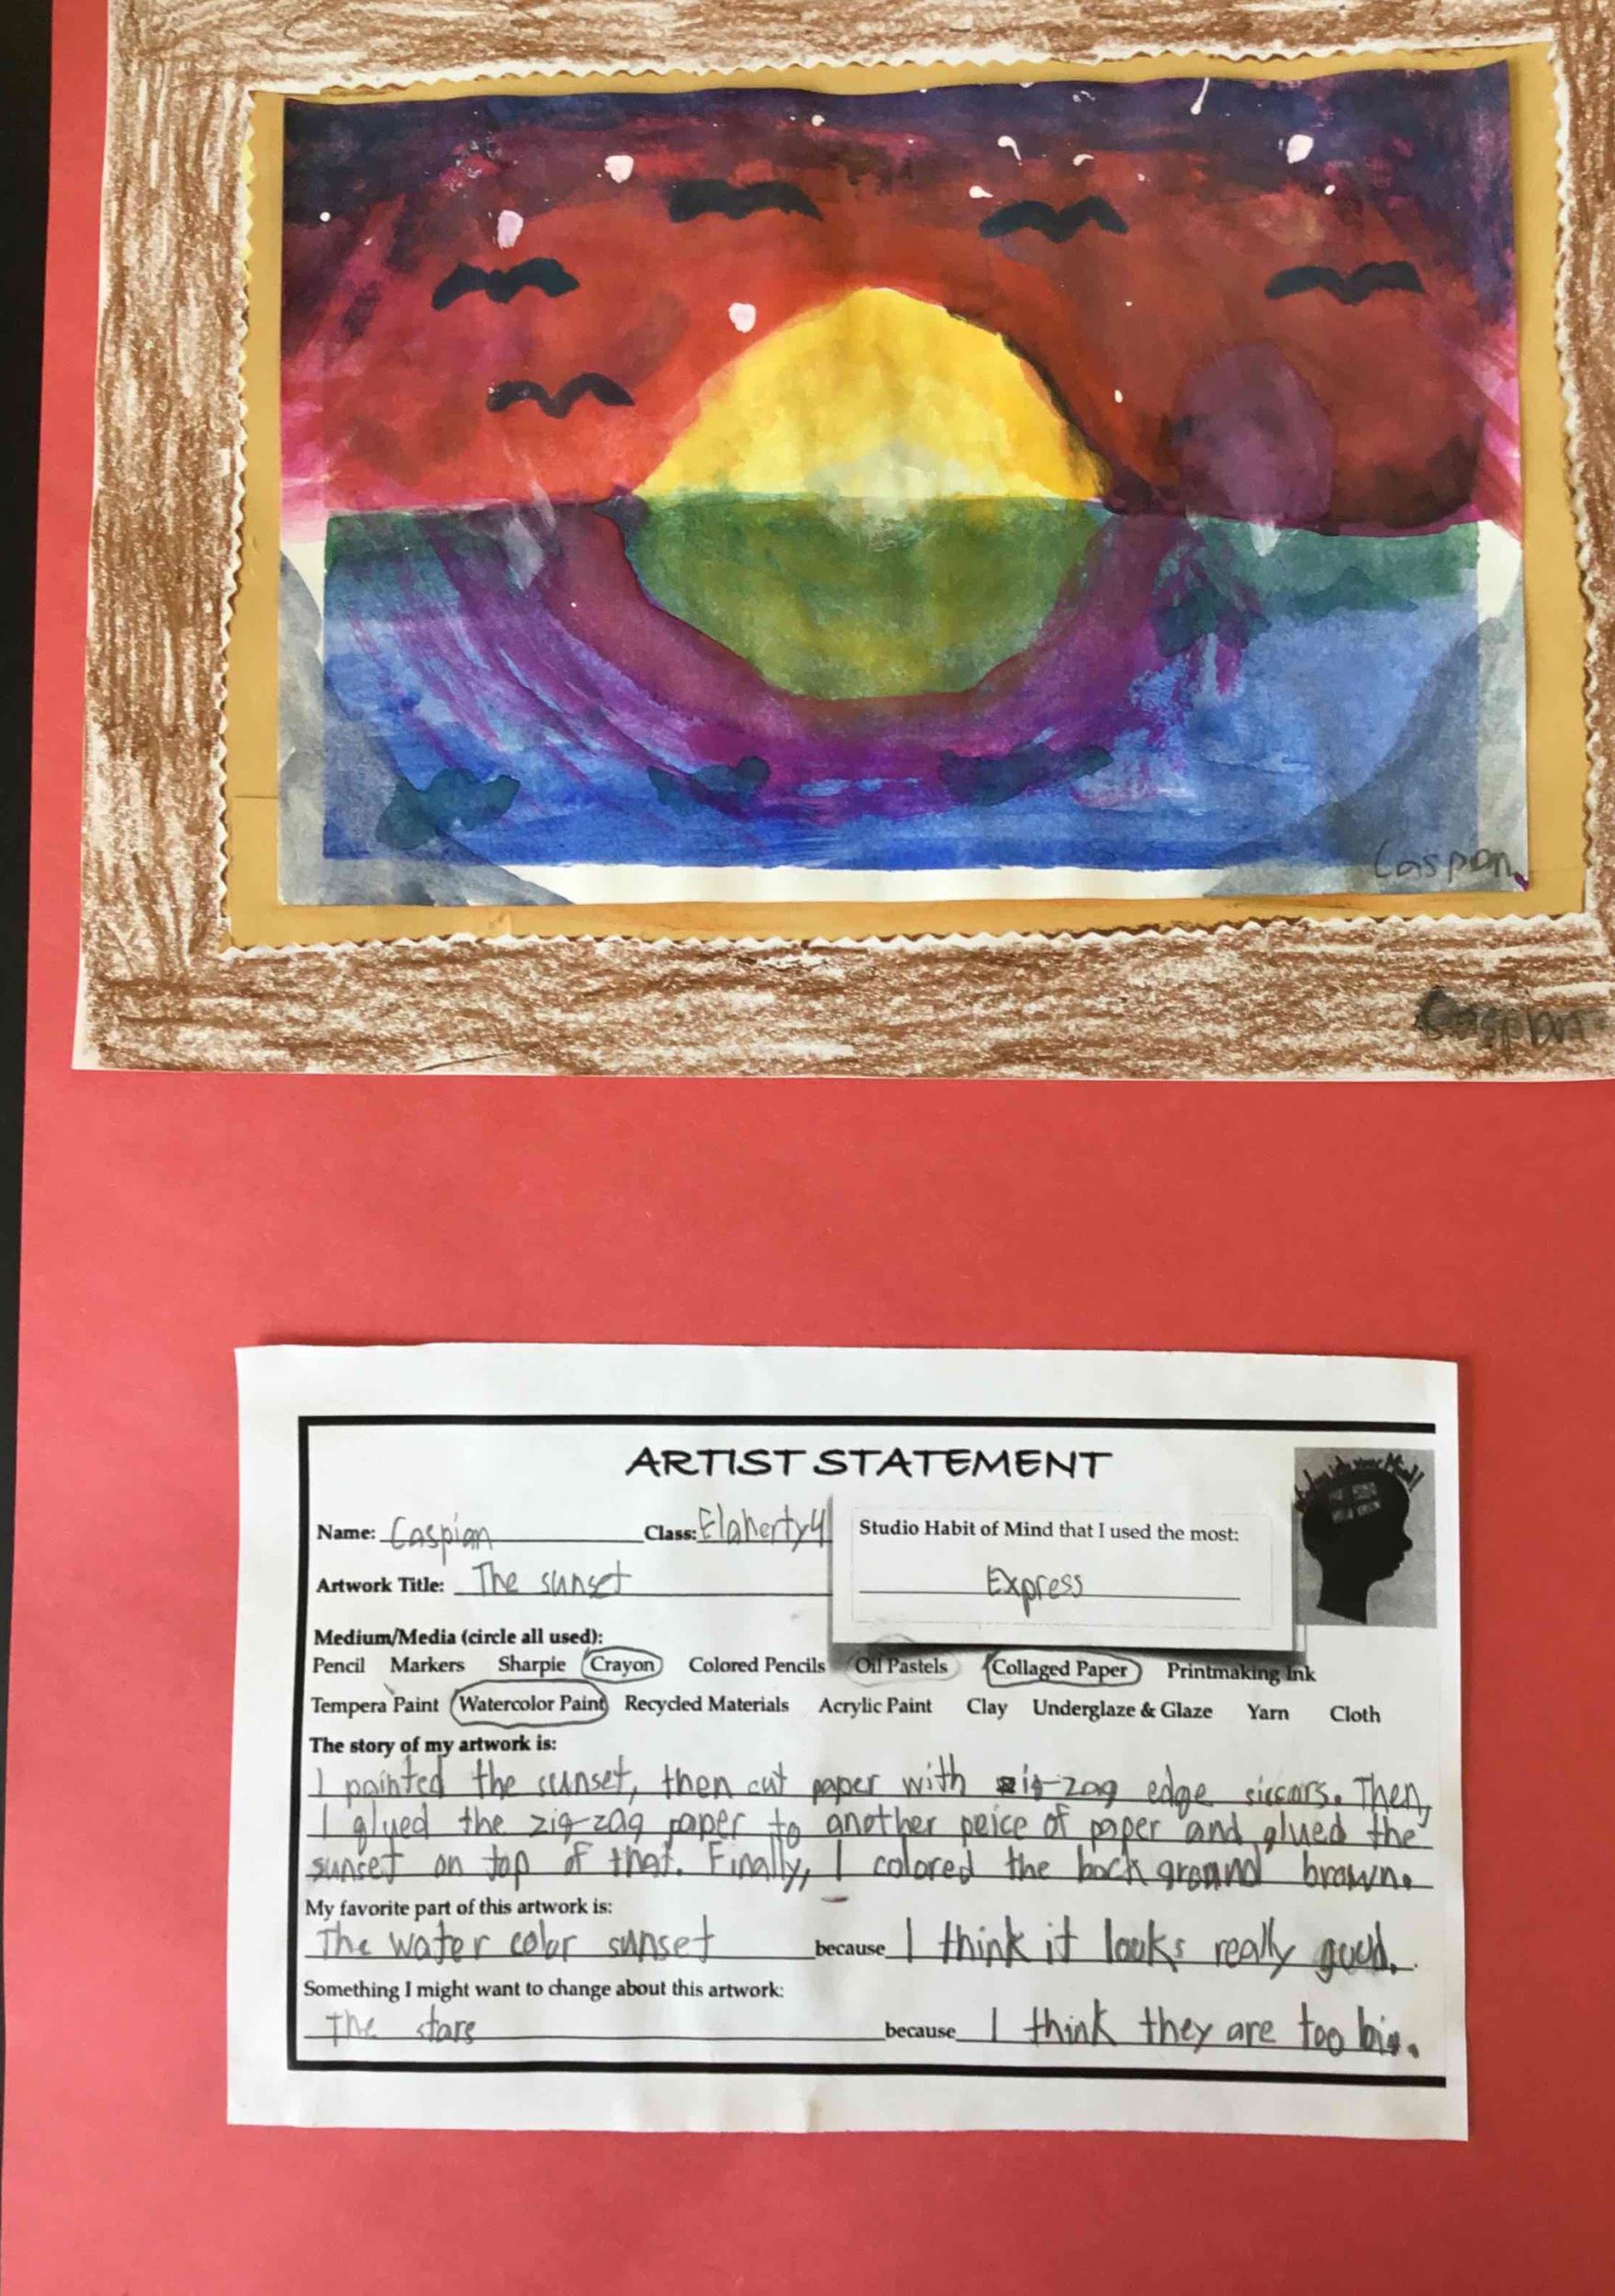 Caspian
Caspian
ARTIST STATEMENT
Name: Caspian Class: Flaherty 4
Studio Habit of Mind that I used the most:
Express
Artwork Title: The sunset
Medium/Media (circle all used):
Pencil Markers Sharpie Crayon Colored Pencils Oil Pastels Collaged Paper Printmaking Ink
Tempera Paint Watercolor Paint Recycled Materials Acrylic Paint Clay Underglaze & Glaze Yarn Cloth
The story of my artwork is:
I painted the sunset, then cut paper with zig-zag edge siccors. Then,
I glued the zig-zag paper to another peice of paper and glued the
sunset on top of that. Finally, I colored the back ground brown.
My favorite part of this artwork is:
The water color sunset because I think it looks really good.
Something I might want to change about this artwork:
The stars because I think they are too big.